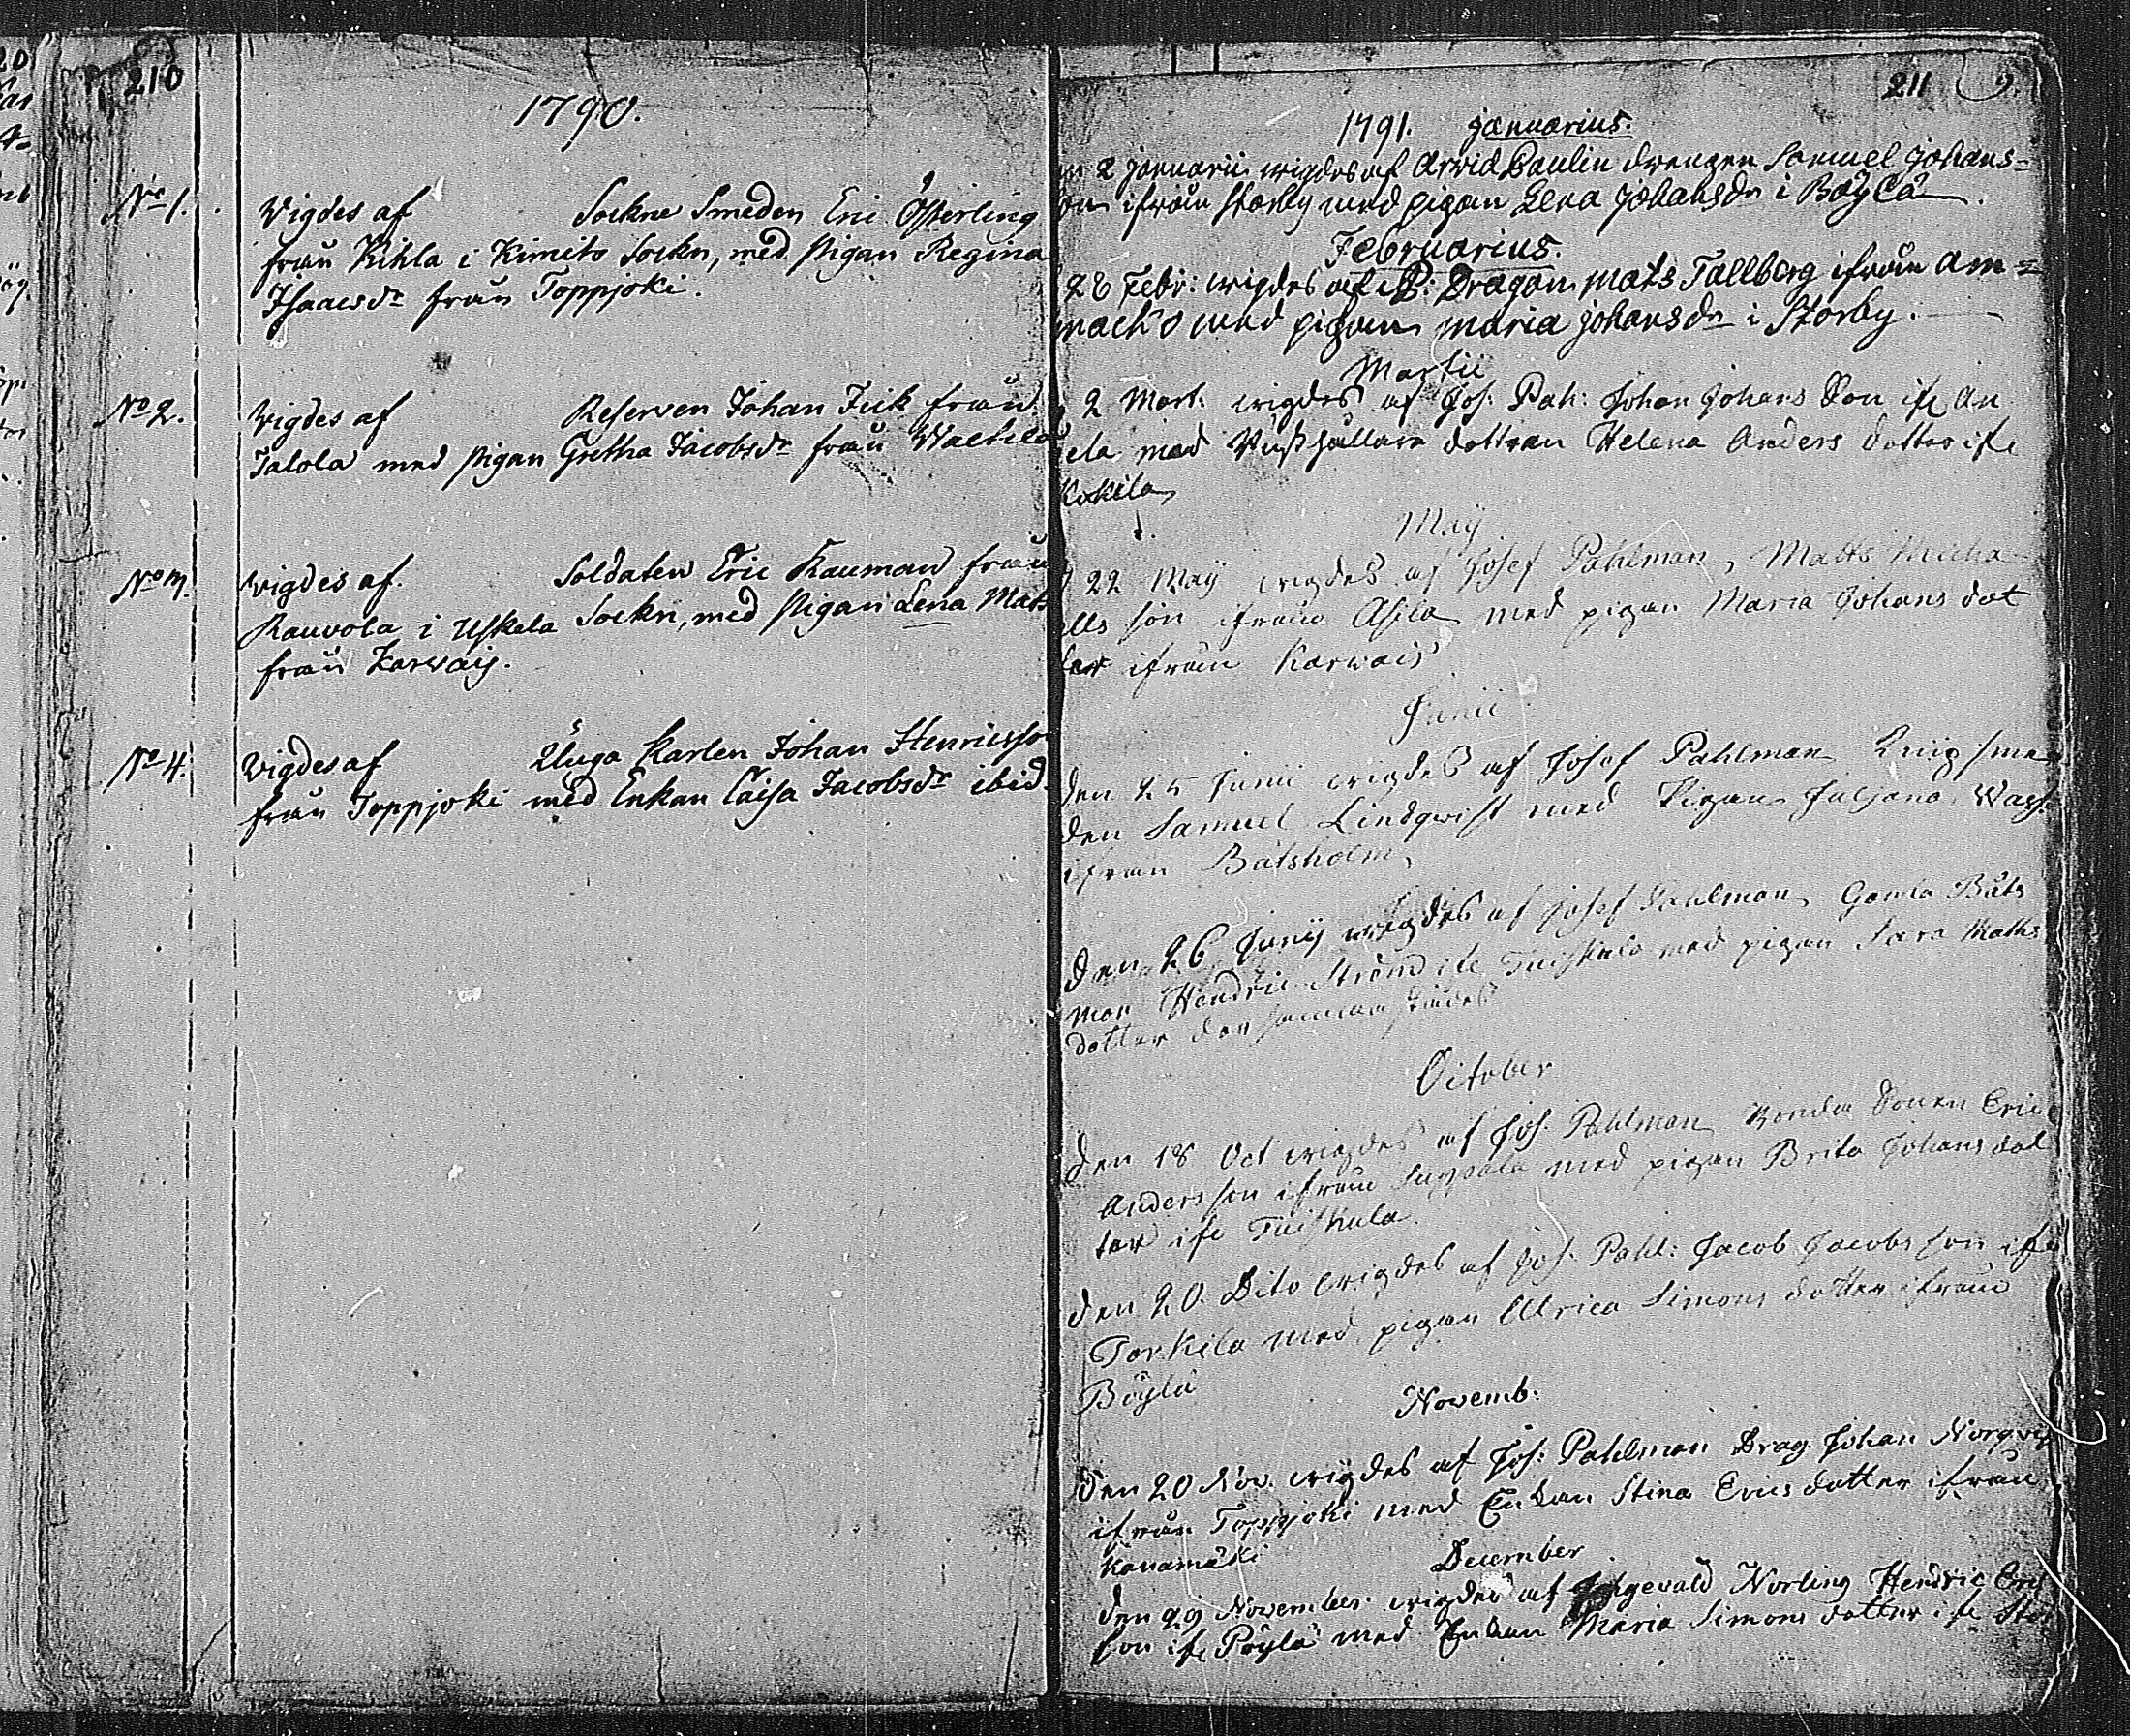 210
1790.
No 1. Vigdes af Sockne Smeden Eric Österling
från Kihla i Kimito Sockn, med Pigan Regina
Isaacsdr från Toppjoki.
No 2. Vigdes af Reserven Johan Fick från
Jalola med Pigan Gretha Jacobsdr från
No 3. Vigdes af. Soldaten Eric Rauman från
Rauvola i Uskela Sockn, med Pigan Lena Mats
från Karvais.
No 4. Vigdes af Unga Karlen Johan Henricsso
från Toppjoki med Enkan Caisa Jacobsdr ibid.
211
1791. Januarius.
2 Januarii wigdes af Arvid Paulin drengen Samuel Johans-
son ifrån Storby med pigan Lena Johansdr i Böylä.
Februarius.
28 Febr: wigdes af Dragon Mats Tallberg ifrån Am=
med pigan Maria Johansdr i Storby.
Martii
2 Mart: wigdes af Jos: Pah: Johan Johans Son ifr An
ela med Rusthållare dottren Helena Anders dotter ifr
Kokila
Maij
22 Maij wigdes af Josef Pahlman, Matts Micha
ells son ifrån Asila med pigan Maria Johans dot
ter ifrån Karwais
Junii
den 25 Junii wigdes af Josef Pahlman sme
den Samuel Lindqwist med Pigan Juljana
ifrån Båtsholm
den 26 Junij wigdes af Josef Pahlman Gamla Båts
man Hendric Strömd ifr Tuiskula med pigan Sara Maths
dotter der sammastädes
October
den 18 Oct wigdes af Jos. Pahlman Bonde Sonen Eric
Anders son ifrån med pigan Brita Johans dot
ter ifr Tuiskula.
den 20. Dito wigdes af Jos. Pahl: Jacob Jacobs son ifr
Torkila med pigan Ulrica Simons dotter ifrån
Böylä
Novemb:
den 20 Nov. wigdes af Jos: Pahlman Drag Johan Norqvis
ifrån Toppjoki med Enkan Stina Erics dotter ifrån
Kanamäki
December
den 29 November wigdes af Ingevald Norling Hendric Eric
son ifr Pöylä med Enkan Maria Simons dotter ifr